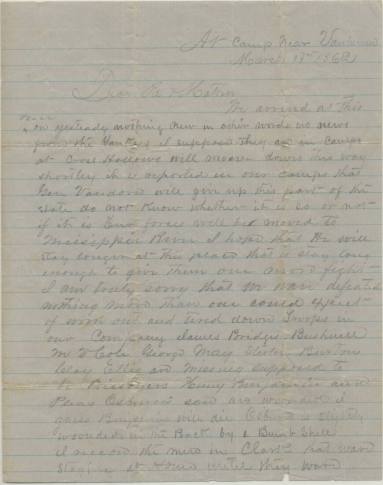 At Camp Near Van buren
March 13th 1862
Dear Pa & Mother
We arrived at This
on yesterday nothing new in other words no news
from the Yankees I suppose They are in Camps
at Cross Hollows will moove down This way
shortley it is reported in our Camps that
Gen Vandorn will give up this part of the
state do not know whether it is so or not
if it is true forces will be moved to
Mississippi River I hope that He will
stay longer at this place that is stay long
enough to give them one more fight
I am truly sorry that We ware defeated
nothing more than one could expect
of worn out and tired down Troops in
our Company James Bridges Bushnell
M D Cole George May
Ellis are missing supposed to
be Prisoners Henry Benjamin and
Pleas Osborn are wounded I
guess Benjamin will die Osborn is slightly
wounded in the Back by a Bumb Shell
I received the mess in Clark that ware
staying at Home until They ware